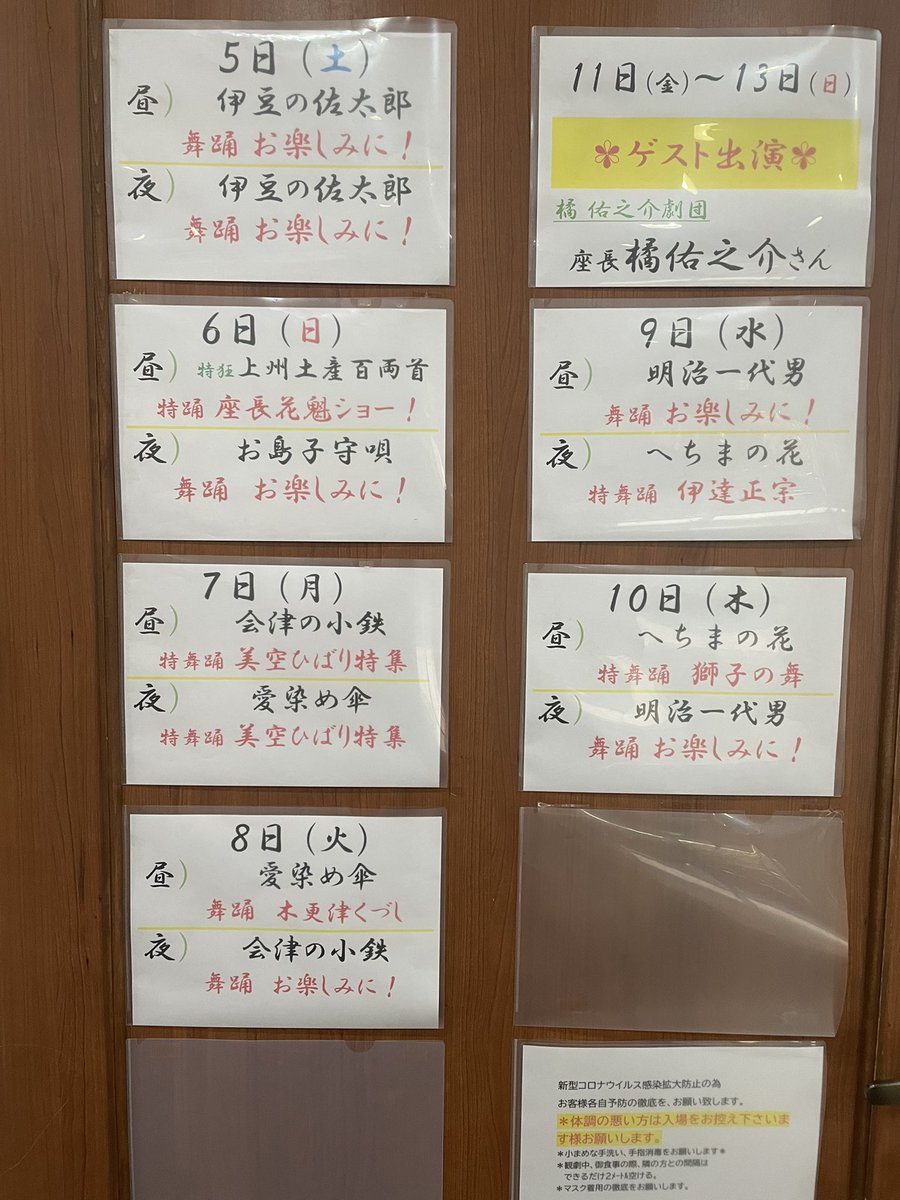 5日（土）
昼）伊豆の佐太郎
舞踊 お楽しみに！
夜）伊豆の佐太郎
舞踊 お楽しみに！
6日（日）
昼）特狂 上州土産百両首
特踊 座長花魁ショー！
夜）お島子守唄
舞踊 お楽しみに！
7日（月）
昼）会津の小鉄
特舞踊 美空ひばり特集
夜）愛染め傘
特舞踊 美空ひばり特集
8日（火）
昼）愛染め傘
舞踊 木更津くづし
夜）会津の小鉄
舞踊 お楽しみに！
11日（金）～13日（日）
ゲスト出演
橘 佑之介劇団
座長 橘佑之介さん
9日（水）
昼）明治一代男
舞踊 お楽しみに！
夜）へちまの花
特舞踊 伊達正宗
10日（木）
昼）へちまの花
特舞踊 獅子の舞
夜）明治一代男
舞踊 お楽しみに！
新型コロナウイルス感染拡大防止の為
お客様各自予防の徹底を、お願い致します。
＊体調の悪い方は入場をお控え下さいま
す様お願いします。
＊小まめな手洗い、手指消毒をお願いします＊
＊観劇中、御食事の際、隣の方との間隔は
できるだけ2メートル空ける。
＊マスク着用の徹底をお願いします。